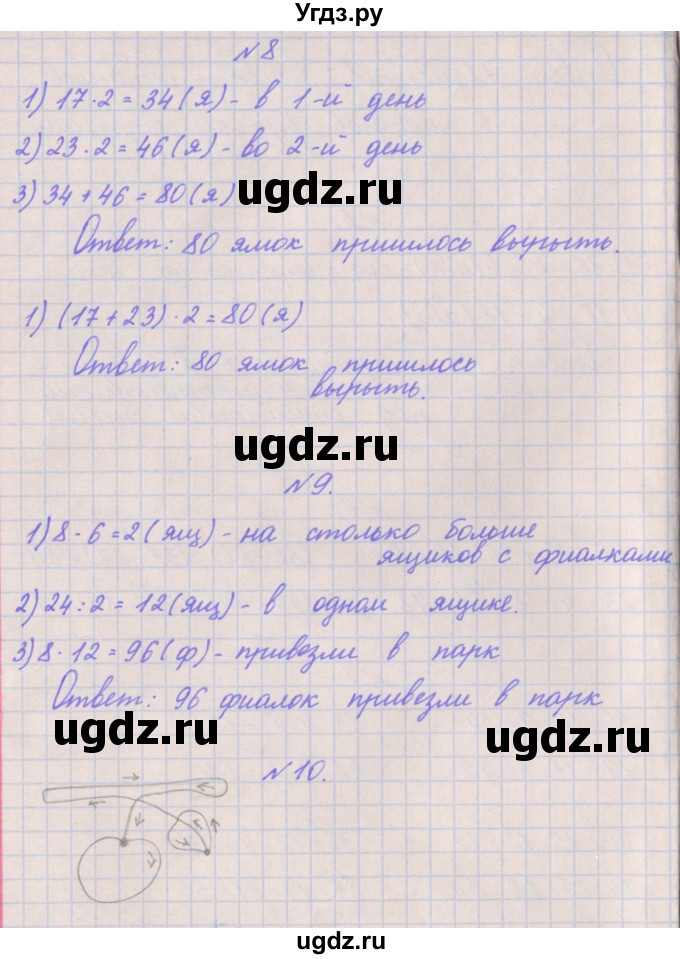 Угдз.ру
№8
1) 17·2=34(я)- в 1-й день
2) 23·2=46(я)- во 2-й день
3) 34+46=80(я)
ugdz.ru
Ответ: 80 ямок пришлось вырыть.
1) (17+23)·2=80(я)
Ответ: 80 ямок пришлось
вырыть.
ugdz.ru
№9.
1) 8-6=2(ящ)-на столько больше
ящиков с фиалками
2) 24:2=12(ящ)-в одном ящике.
3) 8·12=96(ф)-привезли в парк
Ответ: 96 фиалок привезли в парк
ugdz.ru
ugdz.ru
№10.
ugdz.ru